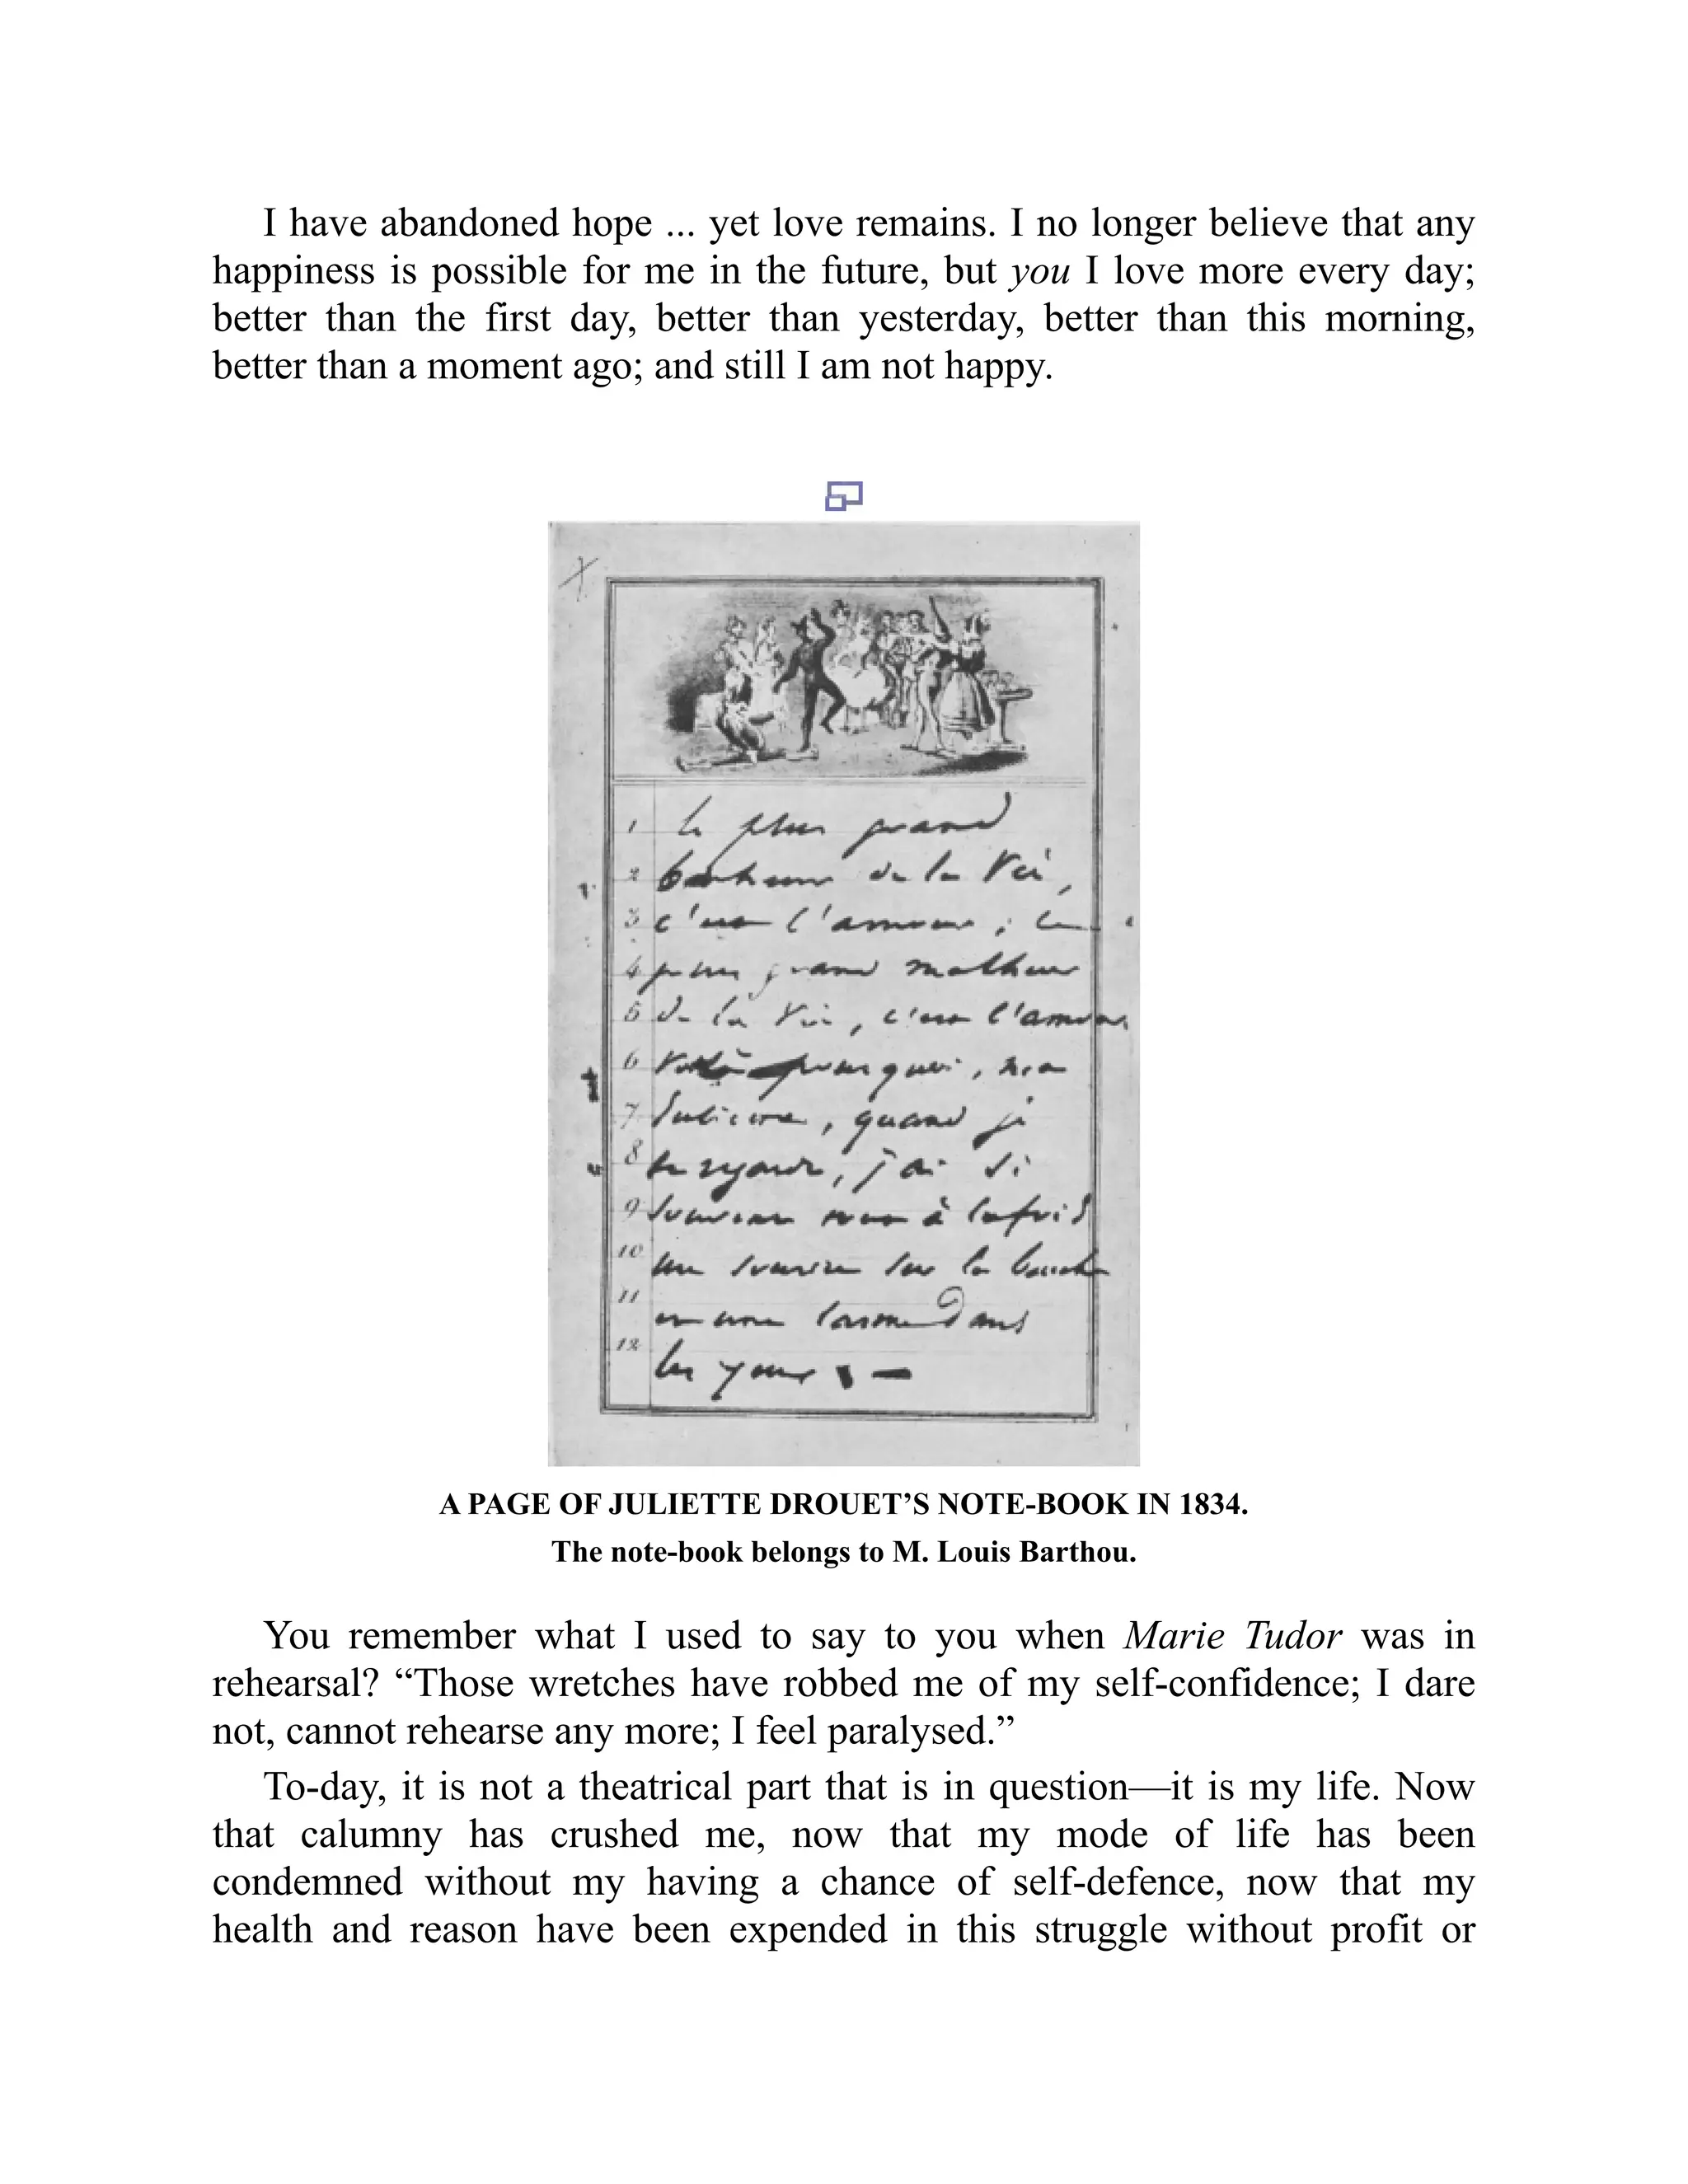 I have abandoned hope ... yet love remains. I no longer believe that any
happiness is possible for me in the future, but you I love more every day;
better than the first day, better than yesterday, better than this morning,
better than a moment ago; and still I am not happy.
1 le plus grand
2 bonheur de la vie,
3 c'est l'amour ; le
4 plus grand malheur
5 de la vie, c'est l'amour
6 voilà pourquoi, ma
7 Juliette, quand je
8 te regarde, j'ai si
9 souvent tout à la fois
10 un sourire sur la bouche
11 et une larme dans
12 les yeux
A PAGE OF JULIETTE DROUET’S NOTE-BOOK IN 1834.
The note-book belongs to M. Louis Barthou.
You remember what I used to say to you when Marie Tudor was in
rehearsal? “Those wretches have robbed me of my self-confidence; I dare
not, cannot rehearse any more; I feel paralysed.”
To-day, it is not a theatrical part that is in question—it is my life. Now
that calumny has crushed me, now that my mode of life has been
condemned without my having a chance of self-defence, now that my
health and reason have been expended in this struggle without profit or